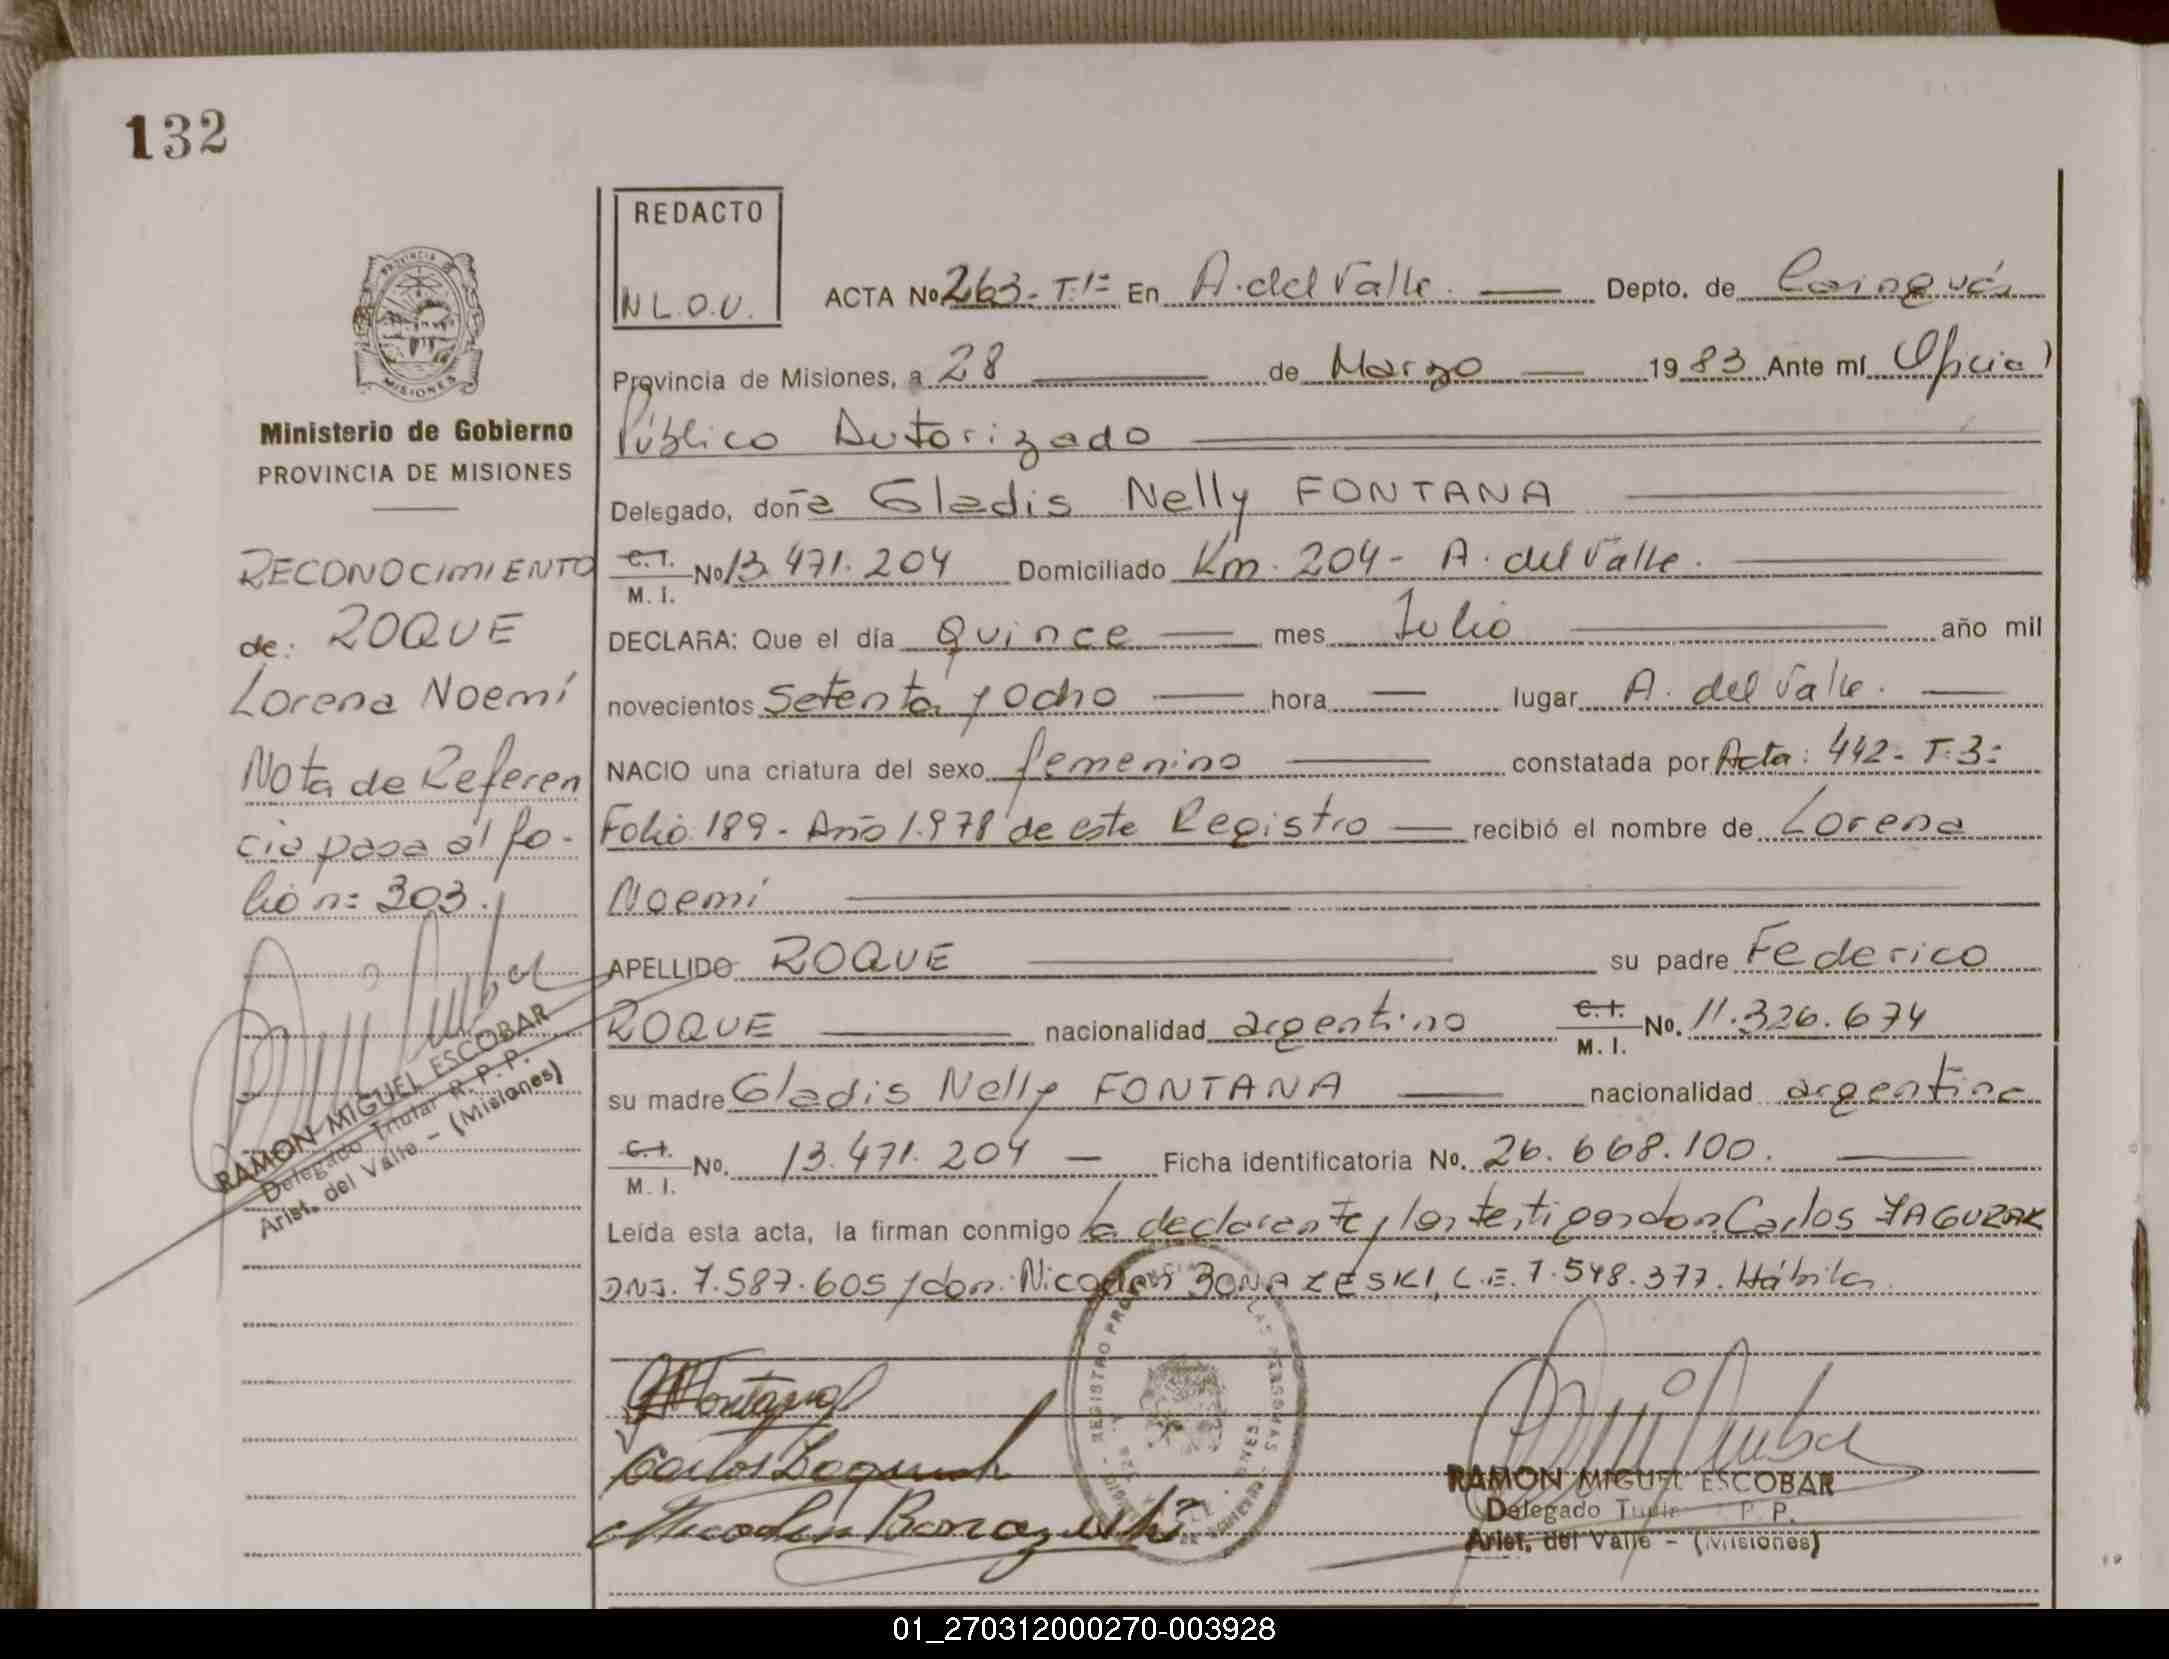 132
REDACTO
N L.O.V.
ACTA No 263 - T.1= En A. del Valle. Depto. de Cainguás
Provincia de Misiones, a 28 de Marzo 1983 Ante mí Oficial
Público Autorizado
Delegado, doña Gladis Nelly FONTANA
C.I. M. I. No 13.471.204 Domiciliado Km. 204 - A. del Valle.
DECLARA: Que el día quince mes Julio año mil
novecientos setenta y ocho hora lugar A. del Valle.
NACIO una criatura del sexo femenino constatada por Acta: 442 - T. 3=
Folio 189 - Año 1.978 de este Registro recibió el nombre de Lorena
Noemí
APELLIDO ROQUE su padre Federico
ROQUE nacionalidad argentino C.I. M. I. No. 11.326.674
su madre Gladis Nelly FONTANA nacionalidad argentina
C.I. M. I. No. 13.471.204 Ficha identificatoria No. 26.668.100.
Leída esta acta, la firman conmigo la declarante y los testigos don Carlos
DNI. 7.587.605 y don: L.E. 7.548.377. Hábiles.
PROVINCIA
MISIONES
Ministerio de Gobierno
PROVINCIA DE MISIONES
RECONOCIMIENTO
de: ROQUE
Lorena Noemí
Nota de Referen
cia pasa al fo-
lio n= 303.
RAMON MIGUEL ESCOBAR
Delegado Titular R. P. P.
Arist. del Valle - (Misiones)
RAMON MIGUEL ESCOBAR
Delegado P. P.
Arist. del Valle - (Misiones)
01_270312000270-003928